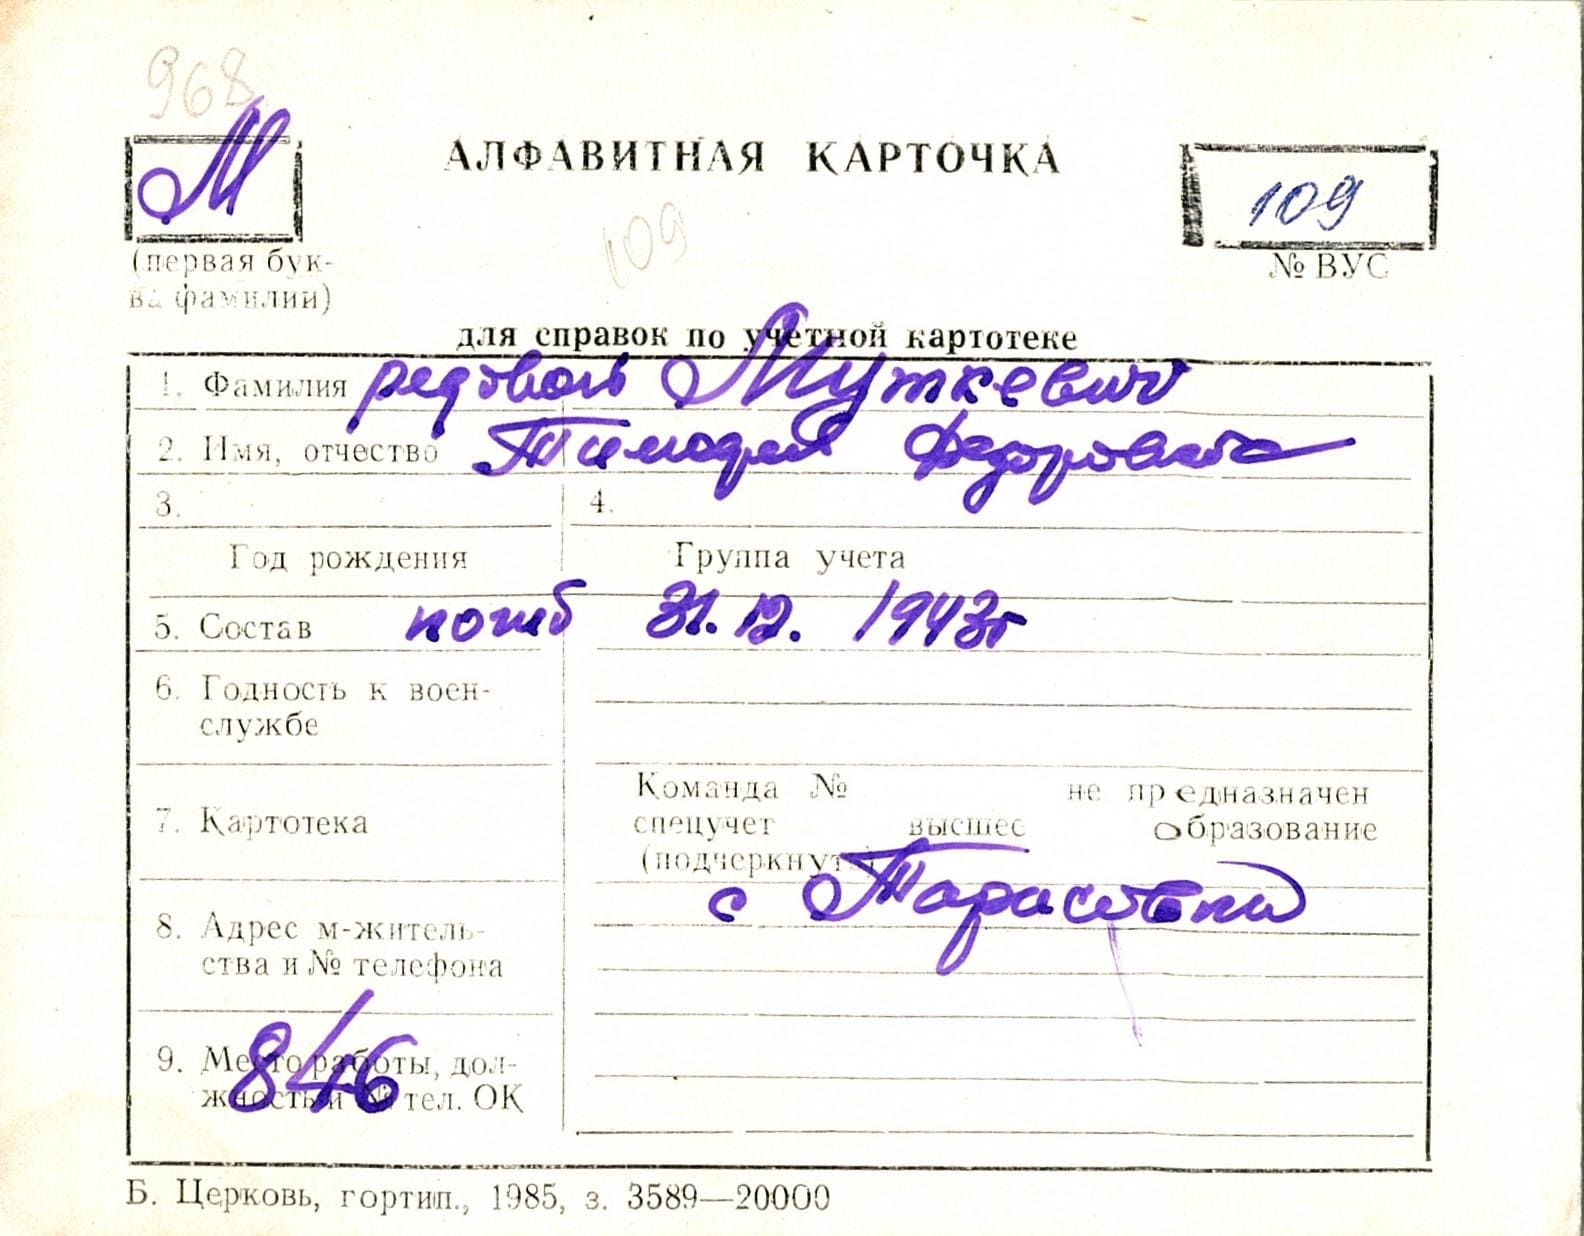 968
М
АЛФАВИТНАЯ КАРТОЧКА
109
(первая бук-
ва фамилии)
109
№ ВУС
для справок по учетной картотеке
1. Фамилия редовой Муткевич
2. Имя, отчество Тимофей Федорович
3. 4.
Год рождения Группа учета
5. Состав погиб 31.12. 1943г
6. Годность к воен-
службе
7. Картотека
Команда № не предназначен
спецучет высшес образование
(подчеркнуть)
8. Адрес м-житель-
ства и № телефона
с Тарасовка
9. Место работы, дол-
жность и № тел. ОК
846
Б. Церковь, гортип., 1985, з. 3589—20000